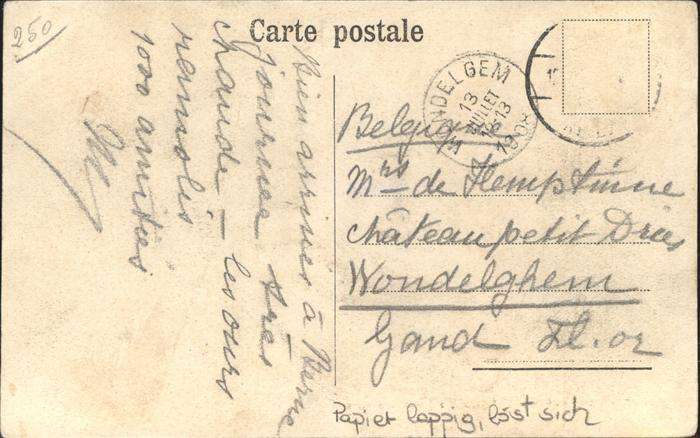 250
Carte postale
Bien arrivés à Berne
journée très
chaude — les ours
ramolis
1000 amitiés
WONDELGEM
13
JUILLET
18-13
1908
Belgique
Mrs de Hemptinne
château petit Dries
Wondelghem
Gand Fl. or
Papier lappig, löst sich